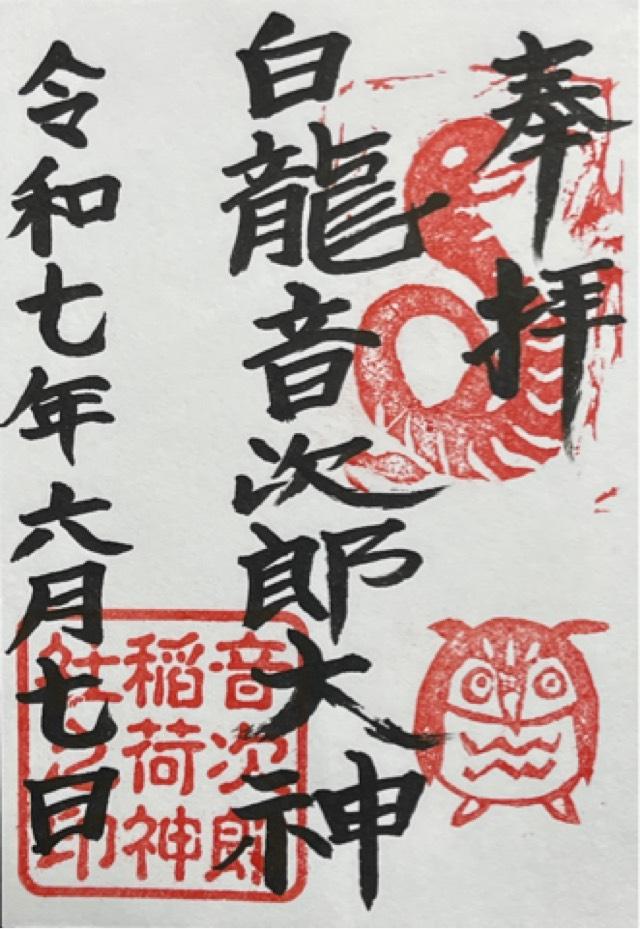 奉拝
白龍音次郎大神
令和七年六月七日
音次郎
稲荷神
社之印